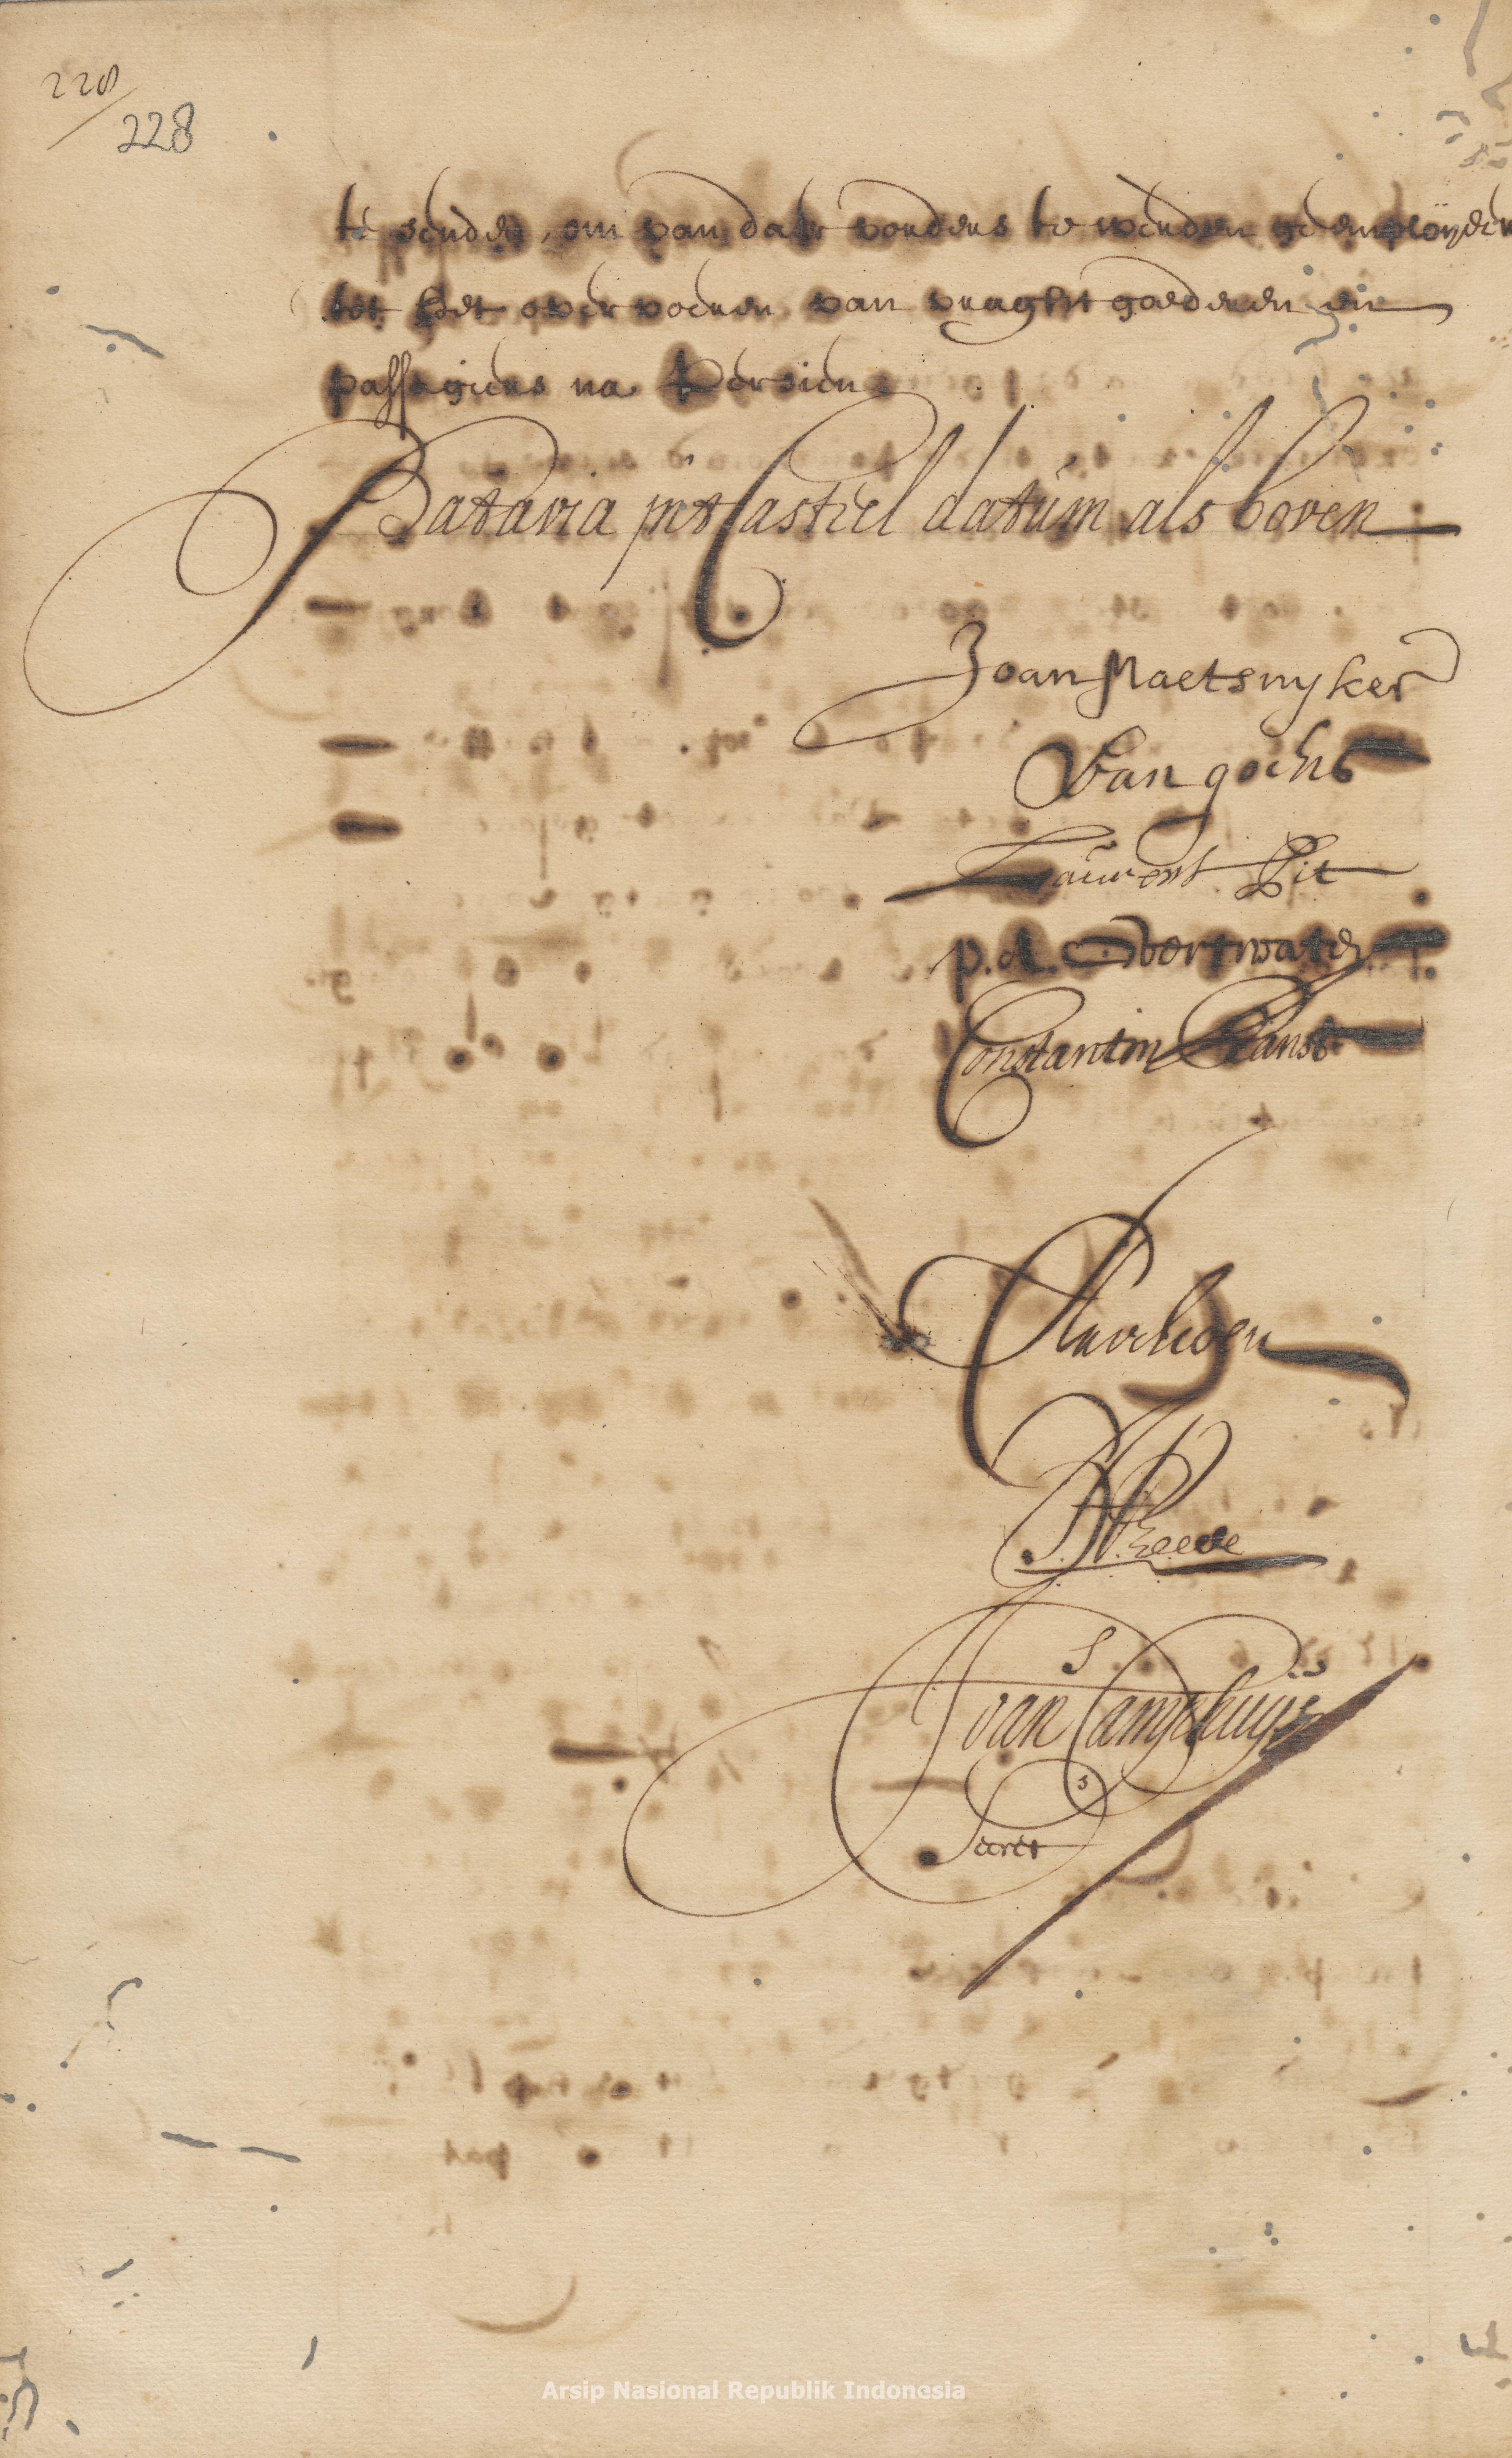 228
228
te senden, om van daer vorders te werden geemployeert
tot het overvoeren van vraght goederen en
passagiers na Persien
Batavia int Casteel datum als boven
Joan Maetsuyker
Van goens
Laurens Pit
p. A. Overtwater
Constantin Ranst
Joan Camphuys
Secret
Arsip Nasional Republik Indonesia